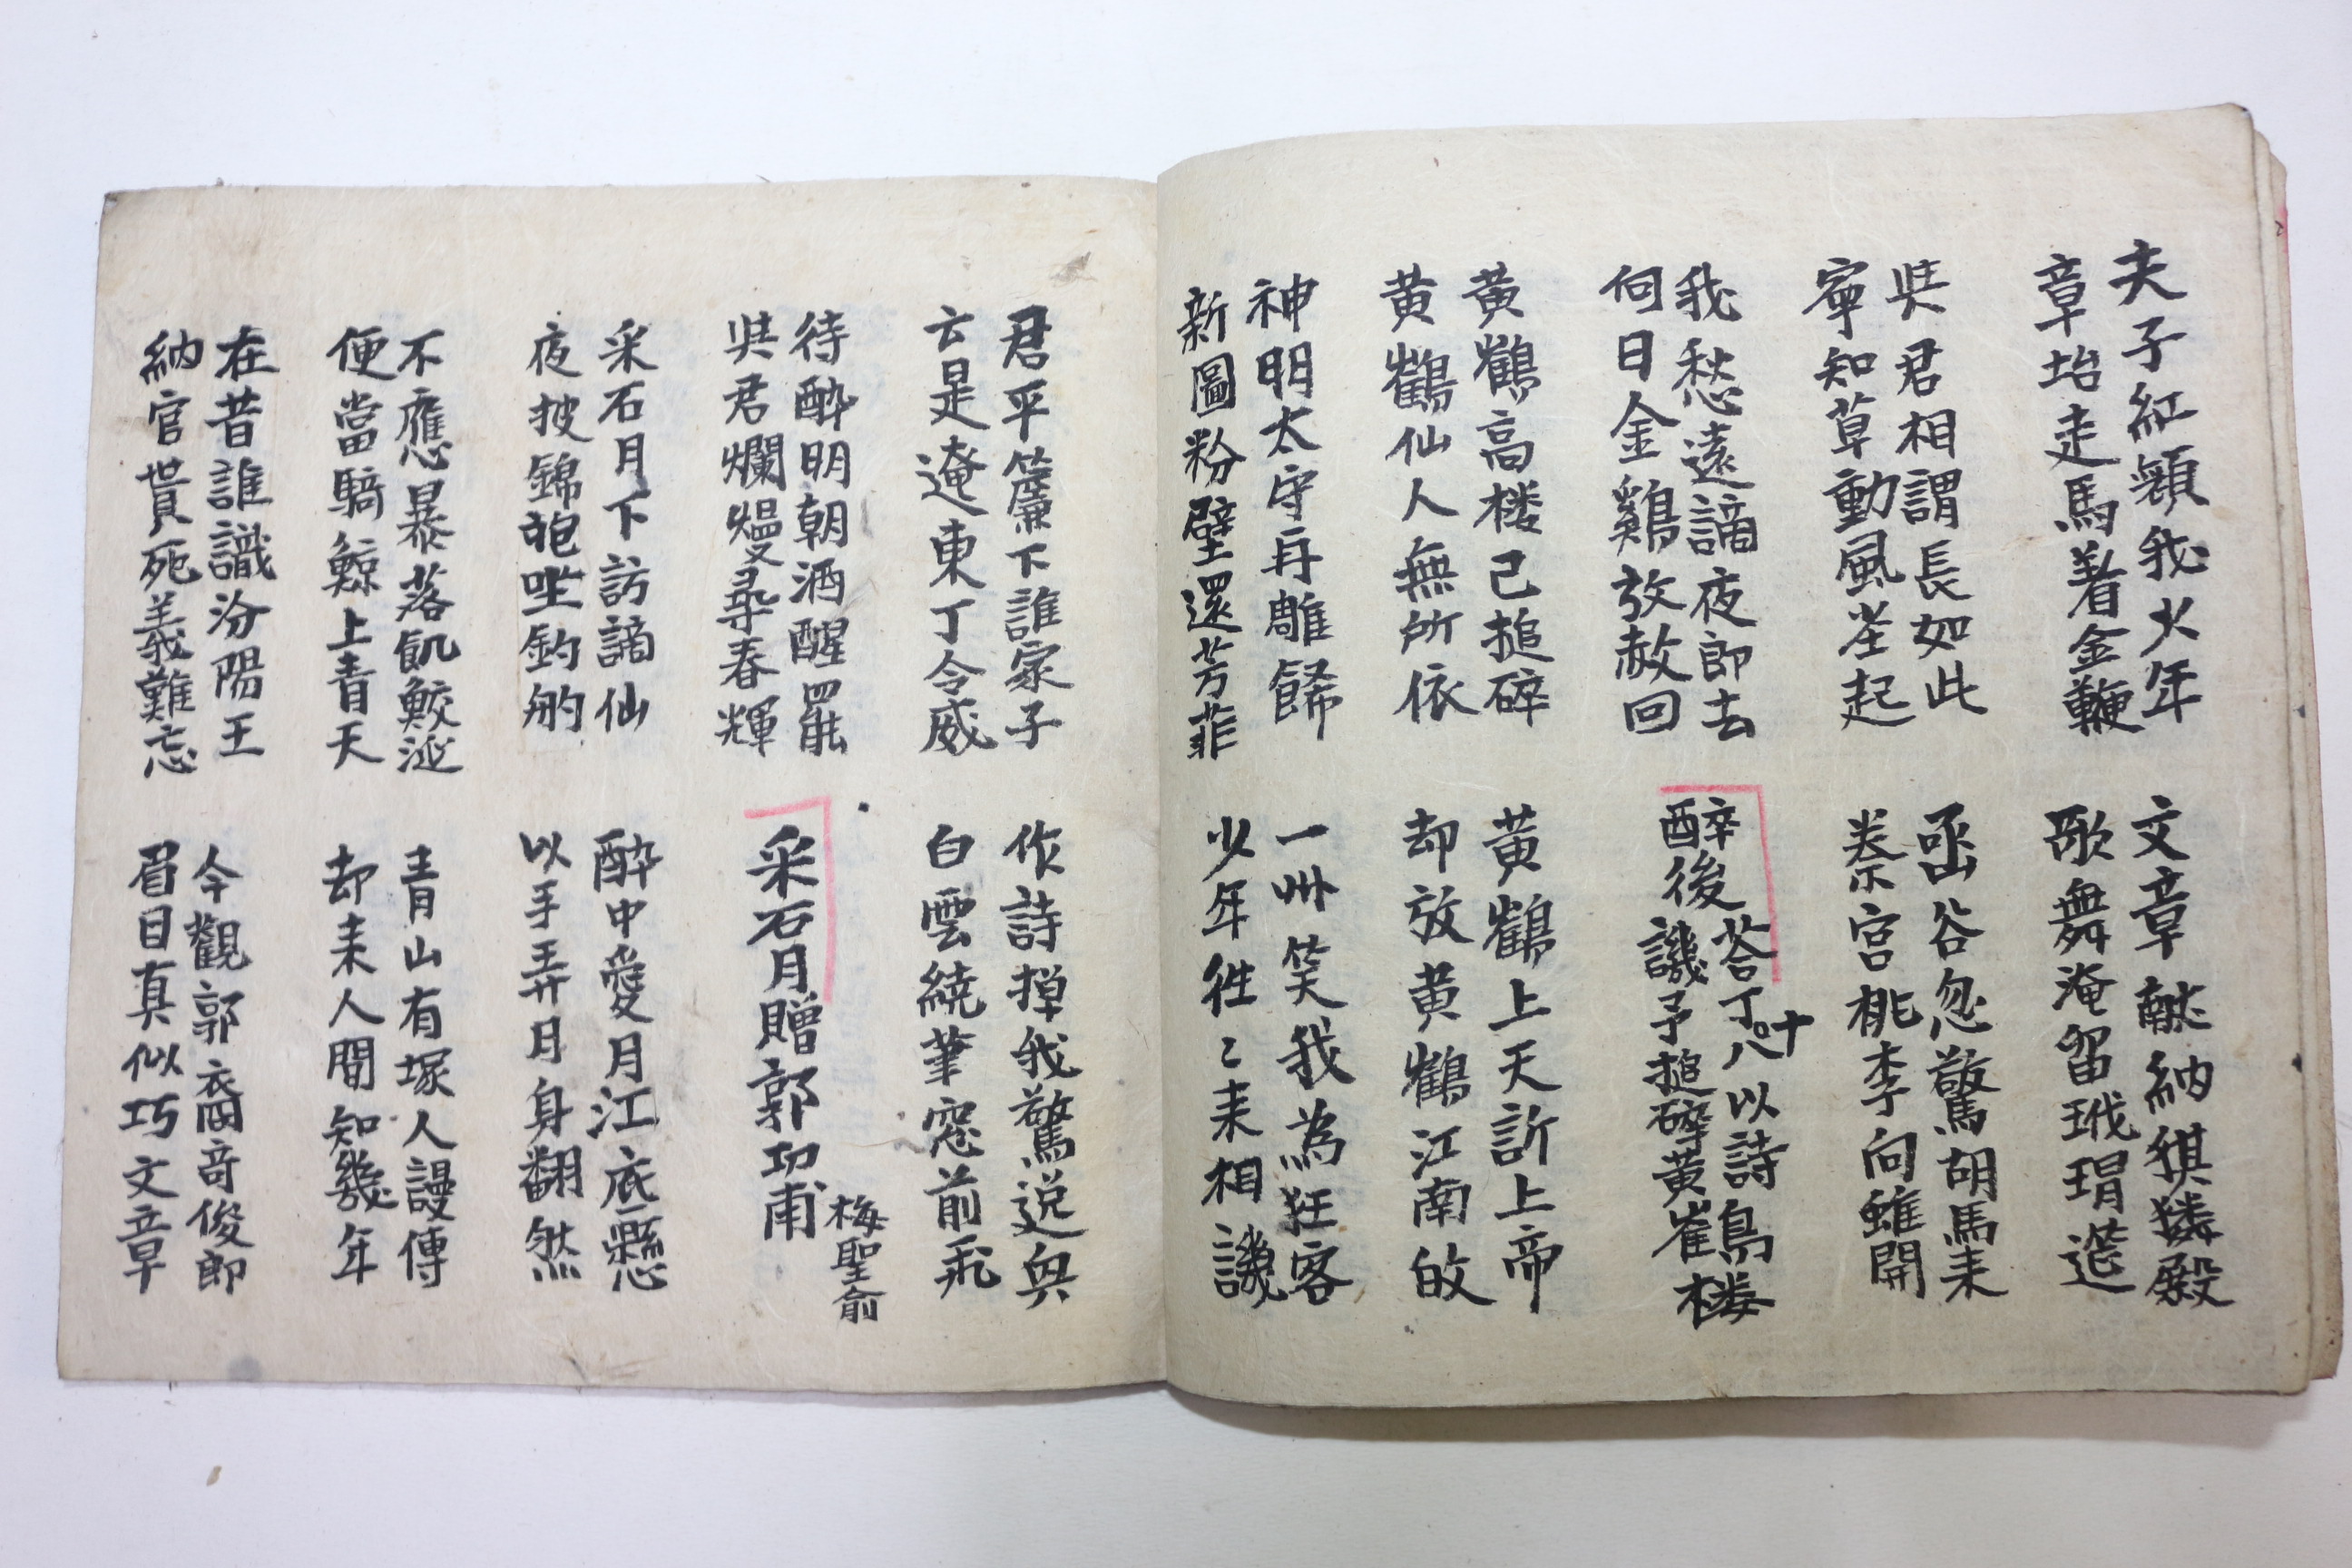 夫子紅顔我少年
章坮走馬着金鞭
文章獻納猉獜殿
歌舞淹留玳瑁莚
與君相謂長如此
寧知草動風塵起
函谷忽驚胡馬来
秦宮桃李向誰開
我愁遠謫夜郎去
何日金鷄放赦回
醉後荅丁十八以詩
譏予搥碎黄鶴楼
黄鶴高楼已搥碎
黄鶴仙人無所依
黄鶴上天訴上帝
却放黄鶴江南故
神明太守再雕餙
新圖粉壁還芳菲
一州笑我為狂客
少年徃〻来相譏
君平簾下誰家子
云是遼東丁令威
作詩掉我驚逸興
白雲繞筆窓前飛
待酔明朝酒醒罷
與君爛熳尋春輝
采石月贈郭功甫
梅聖俞
采石月下訪謫仙
夜披錦袍坐釣舟
酔中愛月江底懸
以手弄月身翻然
不應暴落飢鮫涎
便當騎鯨上青天
青山有塚人謾傳
却来人間知幾年
在昔誰識汾陽王
納官貰死義難忘
今觀郭裔奇俊郎
眉目真似巧文章